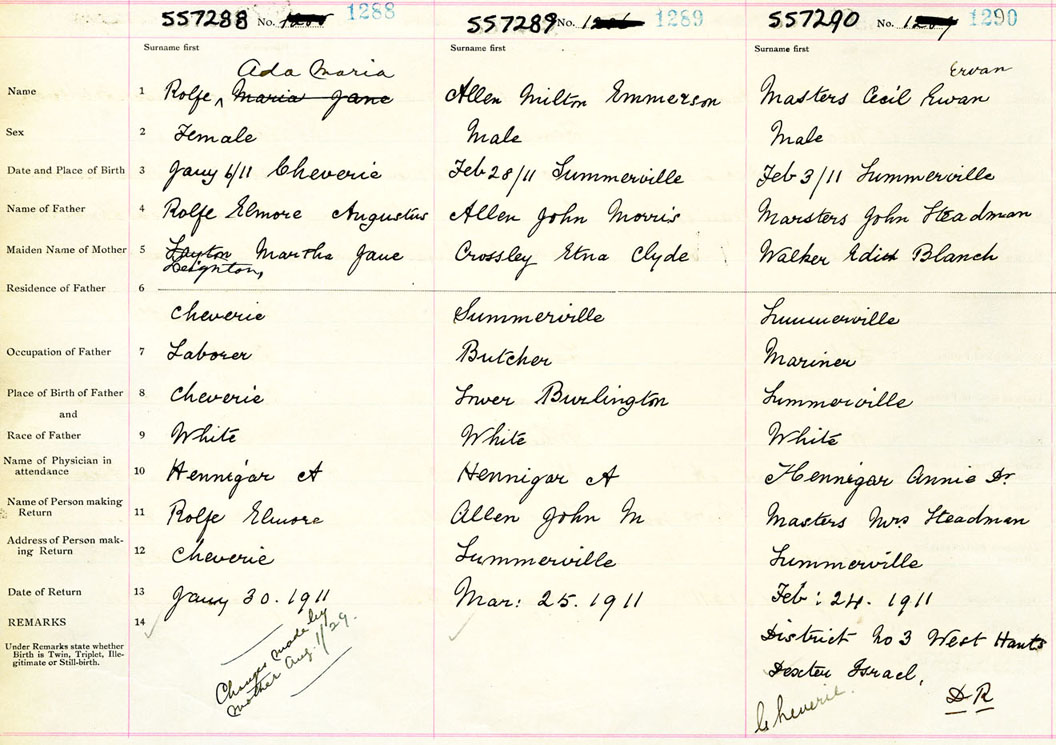 557288 No. 1288 557289 No. 1289 557290 No. 1290
Surname first Surname first Surname first
Ada Maria Ervan
Name 1 Rolfe, Maria Jane Allen Milton Emmerson Masters Cecil Ewan
Sex 2 Female Male Male
Date and Place of Birth 3 Jany 6/11 Cheverie Feb 28/11 Summerville Feb 3/11 Summerville
Name of Father 4 Rolfe Elmore Augustus Allen John Morris Marsters John Steadman
Maiden Name of Mother 5 Layton Martha Jane Crossley Etna Clyde Walker Edith Blanch
Leighton,
Residence of Father 6
Cheverie Summerville Summerville
Occupation of Father 7 Laborer Butcher Mariner
Place of Birth of Father 8 Cheverie Lower Burlington Summerville
and
Race of Father 9 White White White
Name of Physician in
attendance 10 Hennigar A Hennigar A Hennigar Annie Dr.
Name of Person making
Return 11 Rolfe Elmore Allen John M Masters Mrs Steadman
Address of Person mak-
ing Return 12 Cheverie Summerville Summerville
Date of Return 13 Jany 30. 1911 Mar: 25. 1911 Feb: 24. 1911
REMARKS 14
Under Remarks state whether
Birth is Twin, Triplet, Ille-
gitimate or Still-birth.
Changes made by
mother Aug. 1/29.
District No 3 West Hants
Dexter Israel,
Cheverie. D R